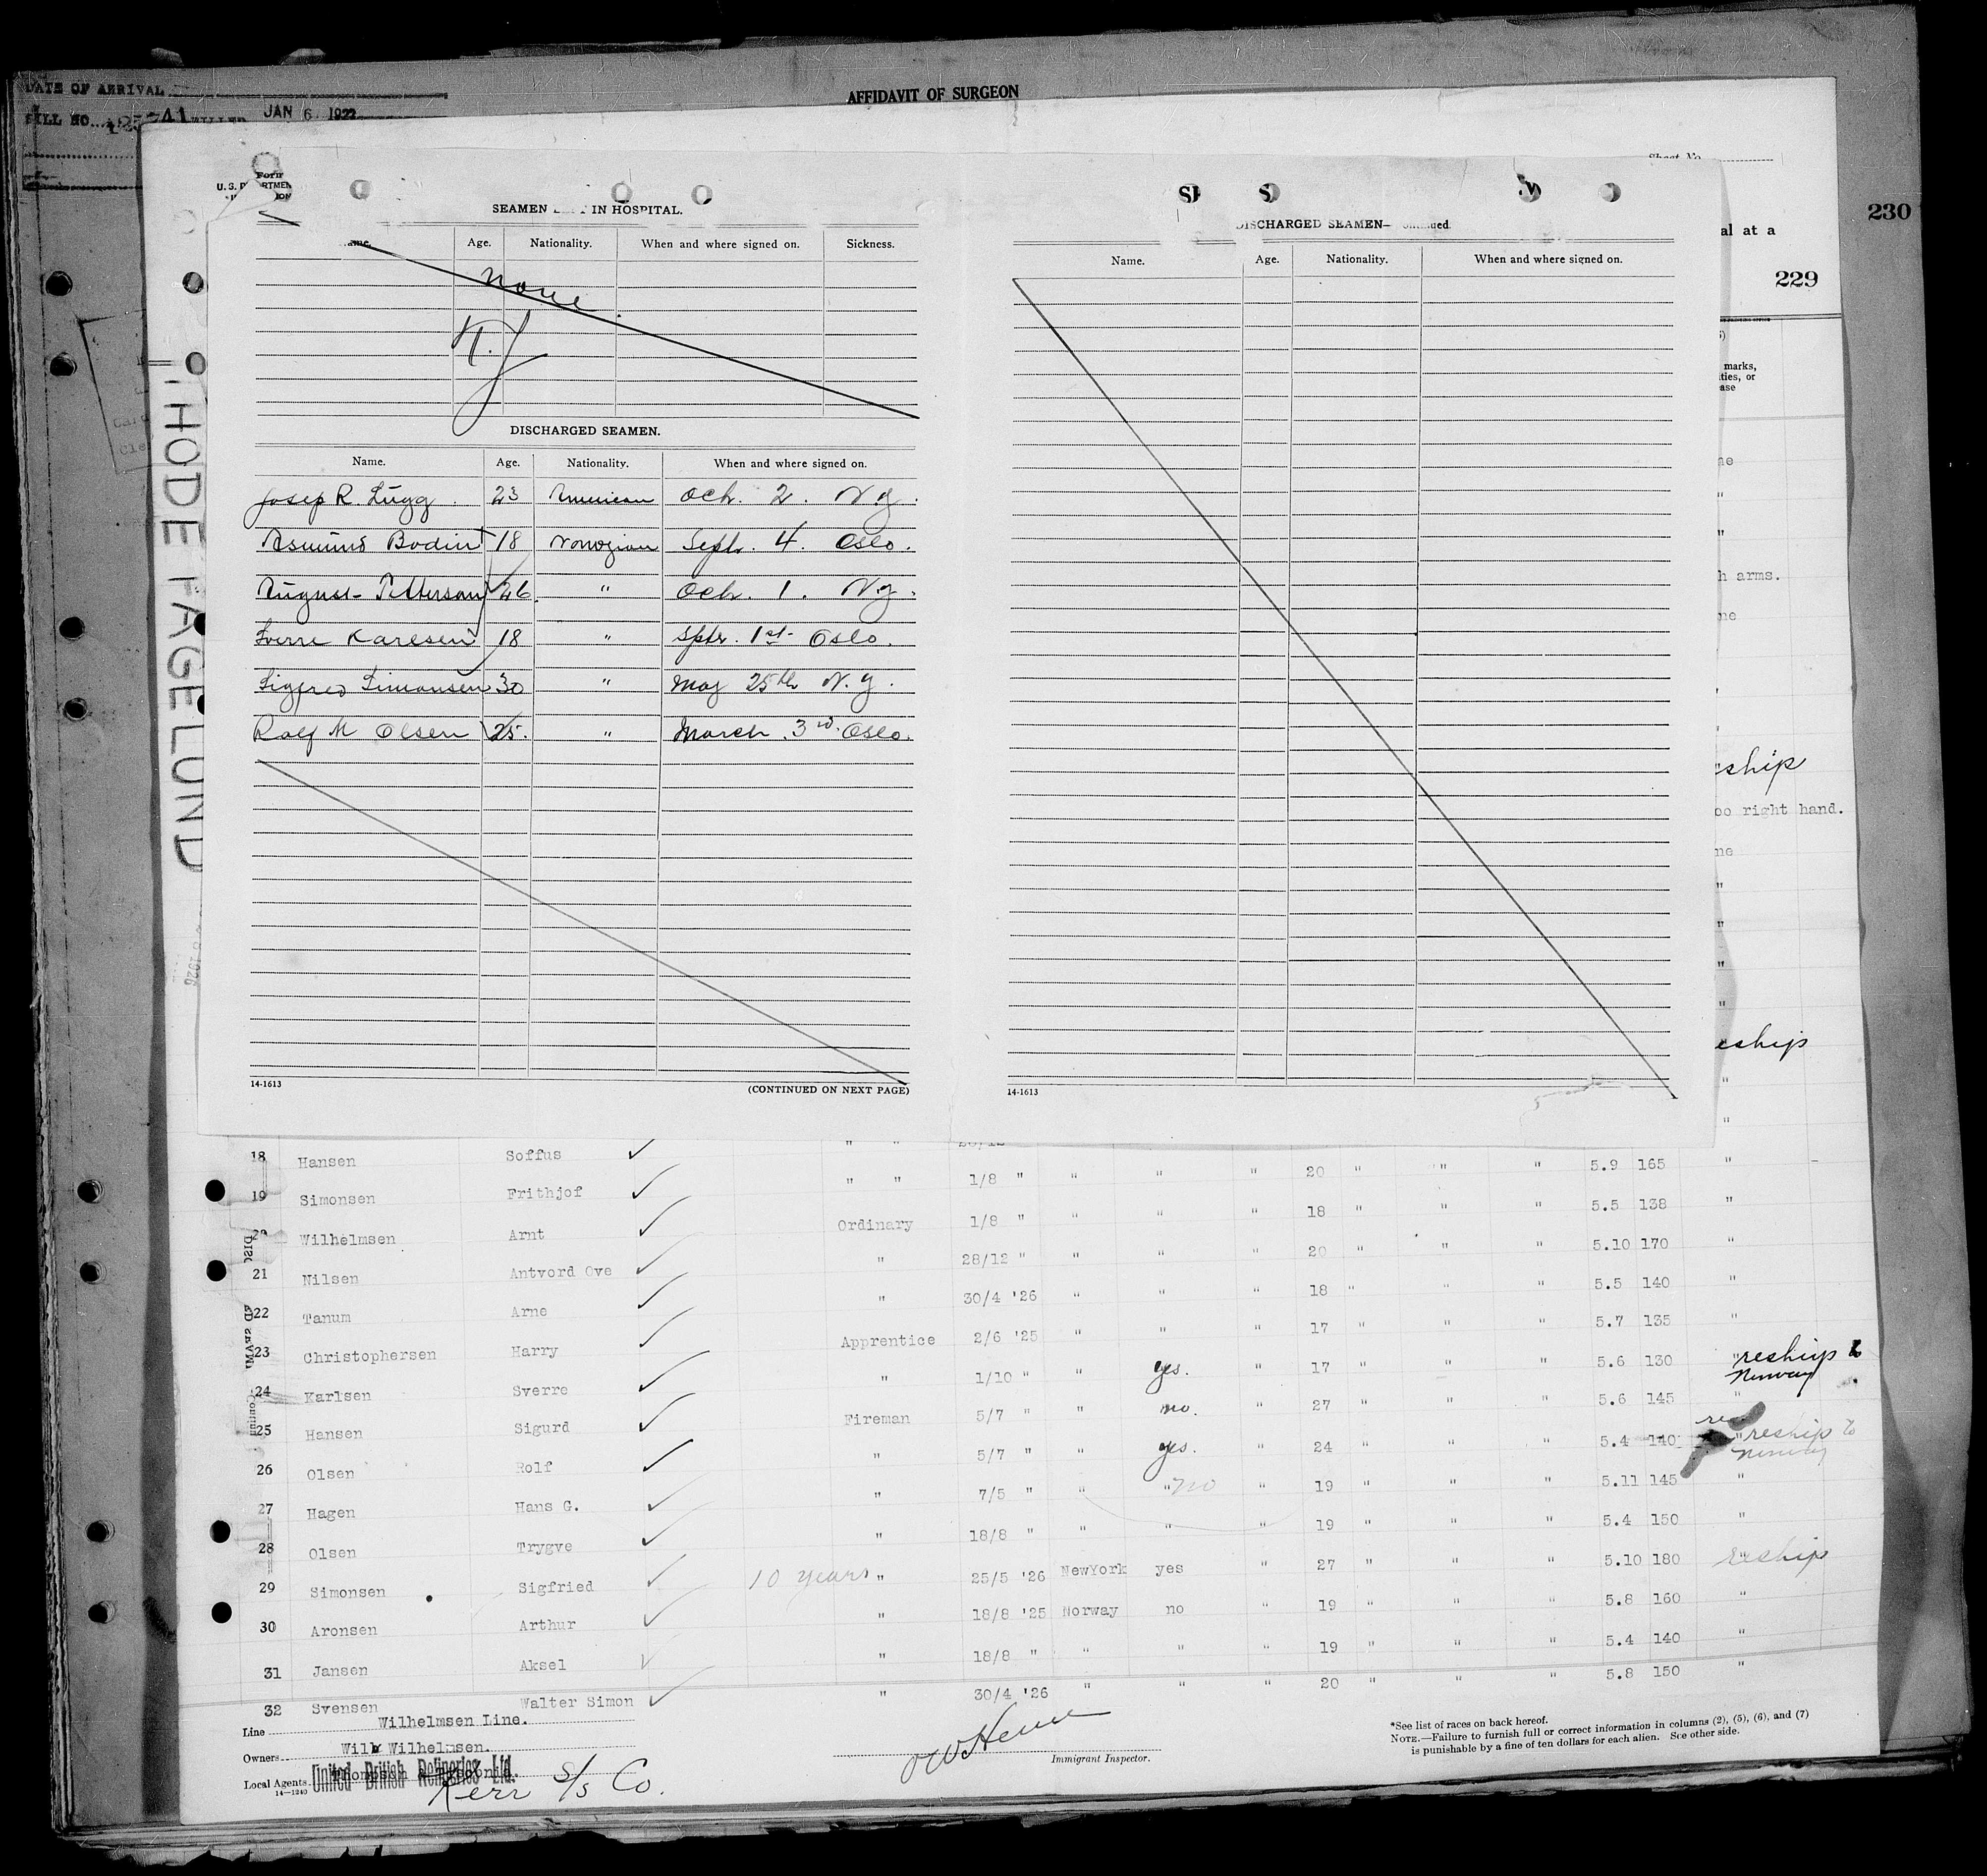 DATE OF ARRIVAL
BILL NO. JAN 6 192
AFFIDAVIT OF SURGEON
Sheet No.
230
al at a
229
marks,
ties, or
ase
THODE FAGELUND
Form
SEAMEN IN HOSPITAL.
Age. Nationality. When and where signed on. Sickness.
none
N.Y
DISCHARGED SEAMEN.
Name. Age. Nationality. When and where signed on.
Josep R. Lugg. 23 American Oct. 2. N.y.
Asmund Bodin 18 Norwegian Sept. 4. Oslo.
August Petterson 26. " Oct. 1. N.y.
Sverre Karlsen 18 " Septr. 1st Oslo.
Sigfred Simonsen 30 " May 25th N.y.
Rolf M Olsen 25. " March. 3rd. Oslo.
14-1613 (CONTINUED ON NEXT PAGE)
DISCHARGED SEAMEN—Continued
Name. Age. Nationality. When and where signed on.
14-1613
h arms.
eship
oo right hand.
eship
18 Hansen Soffus " "
19 Simonsen Frithjof " " 1/8 " " " " 20 " " " 5.9 165 "
20 Wilhelmsen Arnt Ordinary 1/8 " " " " 18 " " " 5.5 138 "
21 Nilsen Antvord Ove " 28/12 " " " " 20 " " " 5.10 170 "
22 Tanum Arne " 30/4 '26 " " " 18 " " " 5.5 140 "
23 Christophersen Harry Apprentice 2/6 '25 " " " 17 " " " 5.7 135 "
24 Karlsen Sverre " 1/10 " " yes. " 17 " " " 5.6 130 " reship to Norway
25 Hansen Sigurd Fireman 5/7 " " no. " 27 " " " 5.6 145 "
26 Olsen Rolf " 5/7 " " yes. " 24 " " " 5.4 140 " reship to Norway
27 Hagen Hans G. " 7/5 " " " no " 19 " " " 5.11 145 "
28 Olsen Trygve " 18/8 " " " " 19 " " " 5.4 150 "
29 Simonsen Sigfried 10 years " 25/5 '26 NewYork yes " 27 " " " 5.10 180 " reship
30 Aronsen Arthur " 18/8 '25 Norway no " 19 " " " 5.8 160 "
31 Jansen Aksel " 18/8 " " " " 19 " " " 5.4 140 "
32 Svensen Walter Simon " 30/4 '26 " " " 20 " " " 5.8 150 "
Line Wilhelmsen Line.
Owners Wilh Wilhelmsen.
Local Agents United British Refineries Ltd.
Kerr S/S Co.
14—1240
Immigrant Inspector.
*See list of races on back hereof.
NOTE.—Failure to furnish full or correct information in columns (2), (5), (6), and (7)
is punishable by a fine of ten dollars for each alien. See other side.